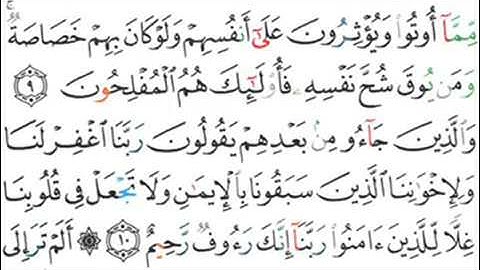 مِّمَّآ أُوتُوا۟ وَيُؤْثِرُونَ عَلَىٰٓ أَنفُسِهِمْ وَلَوْ كَانَ بِهِمْ خَصَاصَةٌۭ ۚ
وَمَن يُوقَ شُحَّ نَفْسِهِۦ فَأُو۟لَـٰٓئِكَ هُمُ ٱلْمُفْلِحُونَ ٩
وَٱلَّذِينَ جَآءُو مِنۢ بَعْدِهِمْ يَقُولُونَ رَبَّنَا ٱغْفِرْ لَنَا
وَلِإِخْوَٰنِنَا ٱلَّذِينَ سَبَقُونَا بِٱلْإِيمَـٰنِ وَلَا تَجْعَلْ فِى قُلُوبِنَا
غِلًّۭا لِّلَّذِينَ ءَامَنُوا۟ رَبَّنَآ إِنَّكَ رَءُوفٌۭ رَّحِيمٌ ١٠ ۞ أَلَمْ تَرَ إِلَى